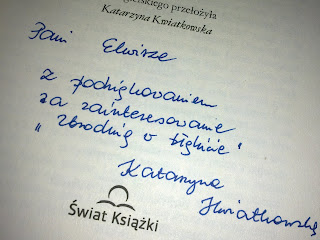 angielskiego przełożyła
Katarzyna Kwiatkowska
Pani Elwirze
z podziękowaniem
za zainteresowanie
„Zbrodnią w błękicie"
Katarzyna
Kwiatkowska
Świat Książki